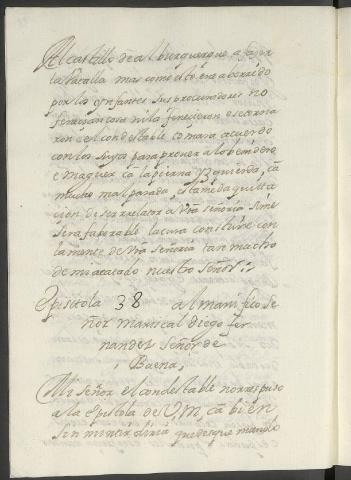 Al castillo de alburquerque a façer
la batalla mas como esto era aborrido
por los ynfantes sus procuradores no
fenecian cosa ni la fenecieron e se torna
ron e el condestable tomara acuerdo
con los suyos para prover a lo benidero
e maguer ca la pierna yzquierda, ca
mucho mal parada, esta me da quitta
cion de ser relator a vra señoria sime
sera fazerable la cura con iture con
la mente de vra señoria tan mucho
de moatacado nuestro señor;
Epistola 38 al manifico se
ñor mariscal Diego fer
nandez señor de
Baena,
Mi señor el condestable no respuso
a la Epistola de V.M. ca bien
sin mentir diria que desque mando